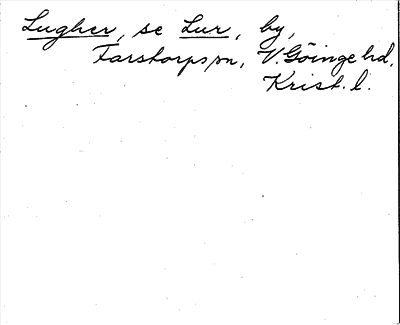 Lugher, se Lur, by,
Farstorps sn, V. Göinge hd,
Krist. l.